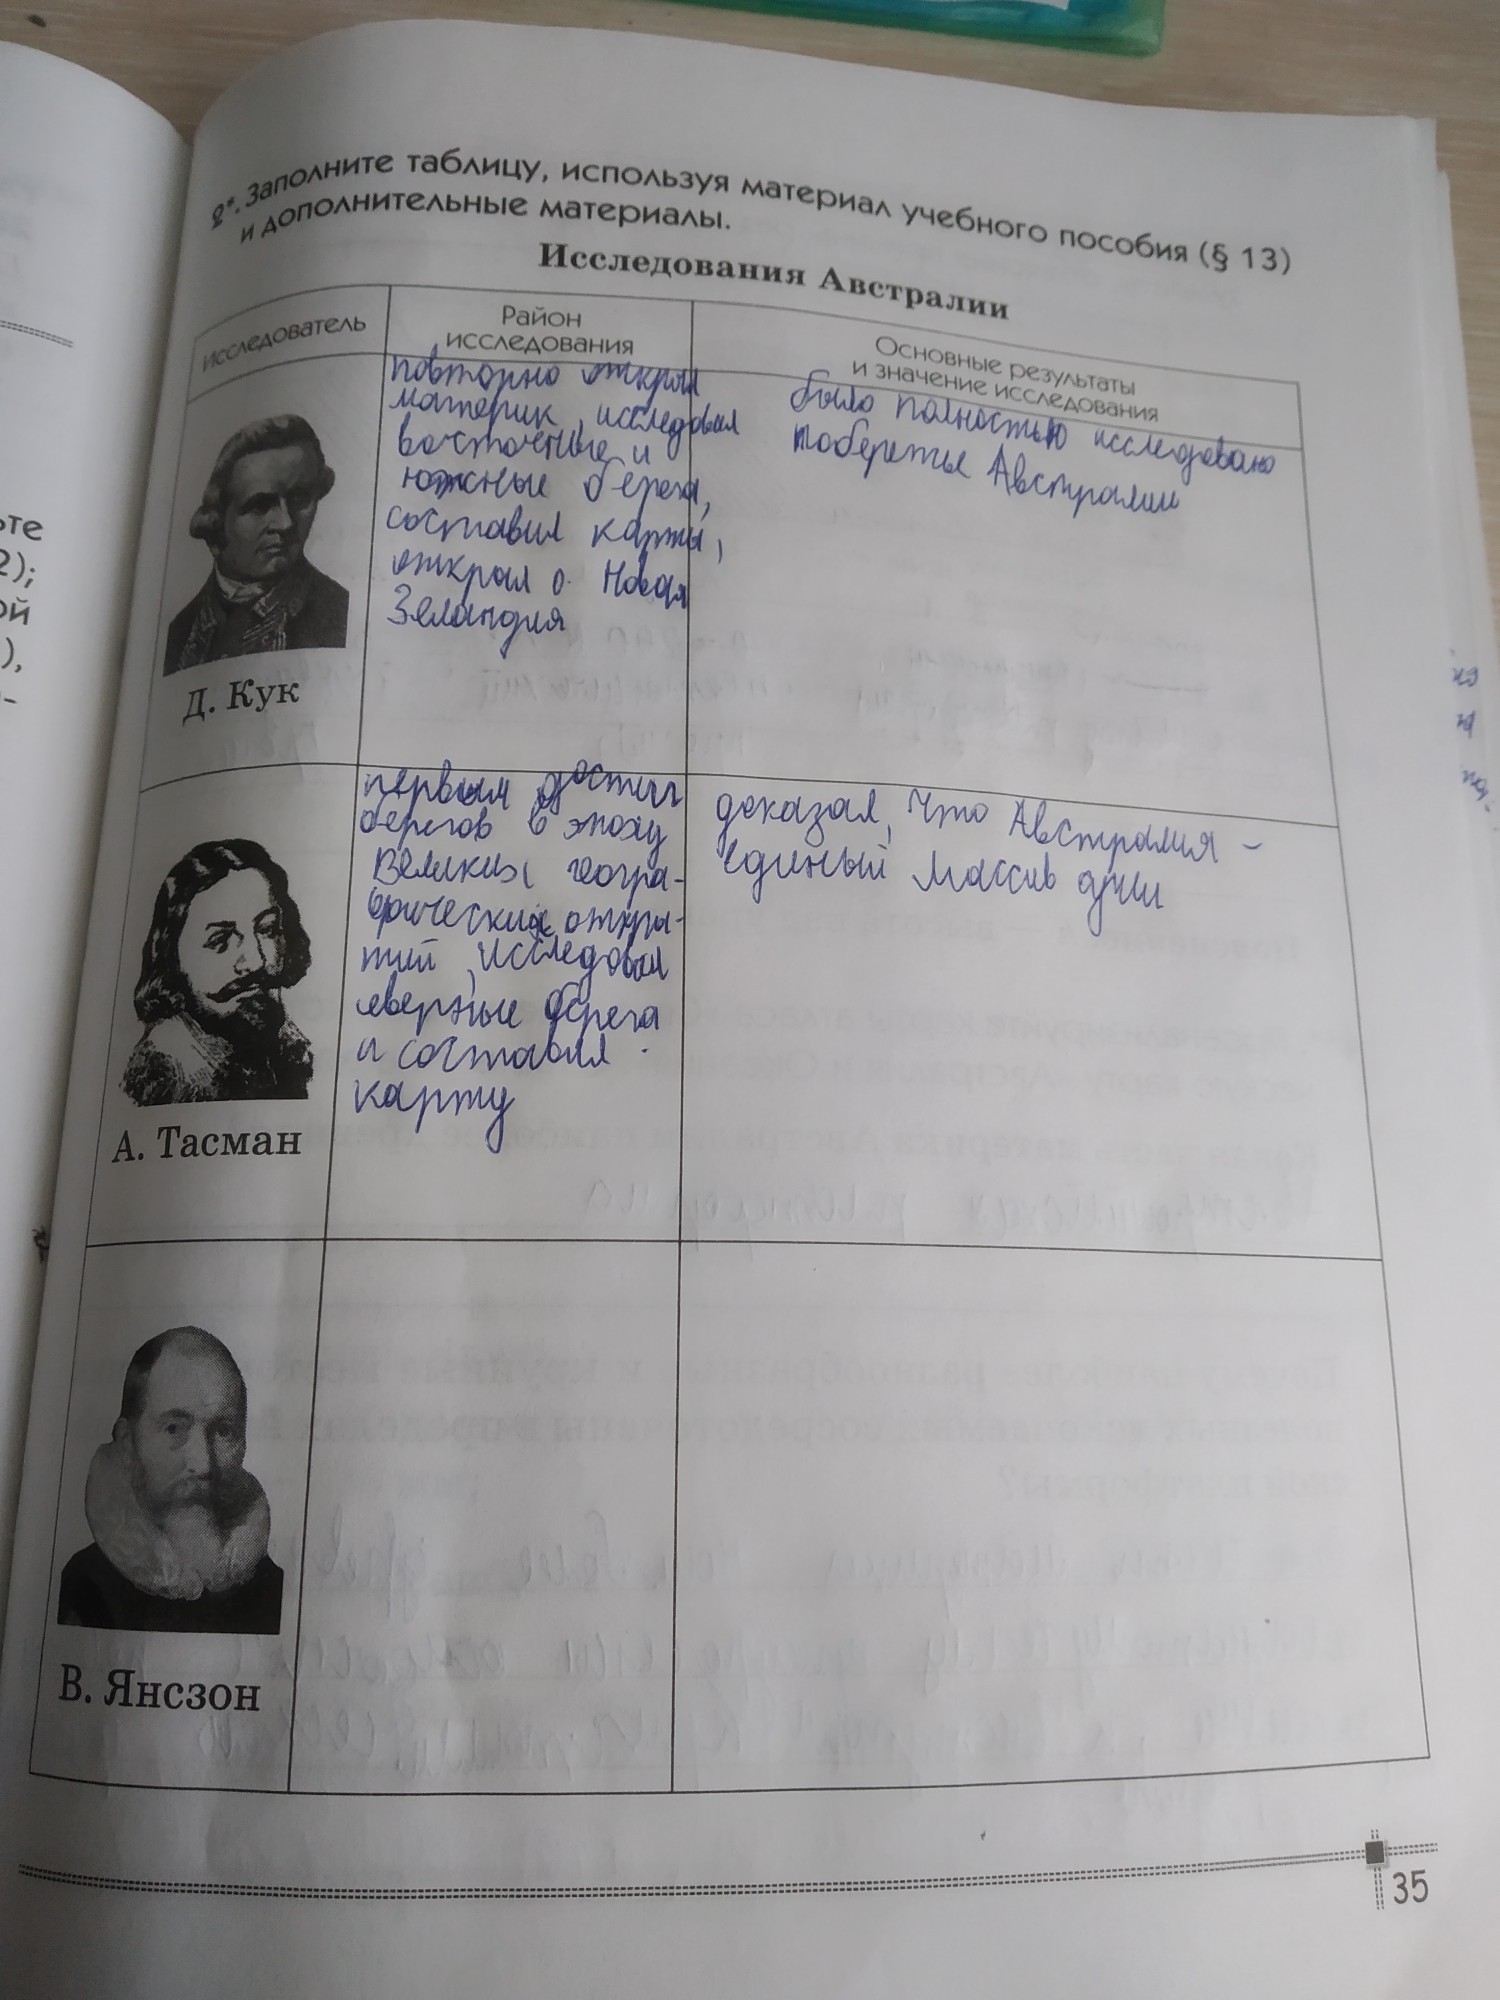 2*. Заполните таблицу, используя материал учебного пособия (§ 13)
и дополнительные материалы.
Исследования Австралии
Исследователь
Район
исследования
Основные результаты
и значение исследования
повторно открыл
материк, исследовал
восточные и
южные берега,
составил карты,
открыл о. Новая
Зеландия
было полностью исследовано
побережье Австралии
Д. Кук
первым достиг
берегов в эпоху
Великих геогра-
фических откры-
тий, исследовал
северные берега
и составил
карту
доказал, что Австралия –
единый массив суши
А. Тасман
В. Янсзон
35